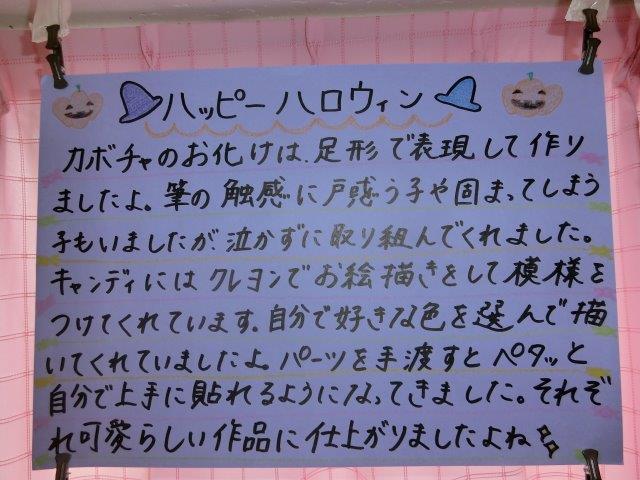 ハッピーハロウィン
カボチャのお化けは、足形で表現して作り
ましたよ。筆の触感に戸惑う子や固まってしまう
子もいましたが泣かずに取り組んでくれました。
キャンディにはクレヨンでお絵描きをして模様を
つけてくれています。自分で好きな色を選んで描
いてくれていましたよ。パーツを手渡すとペタッと
自分で上手に貼れるようになってきました。それぞ
れ可愛らしい作品に仕上がりましたよね